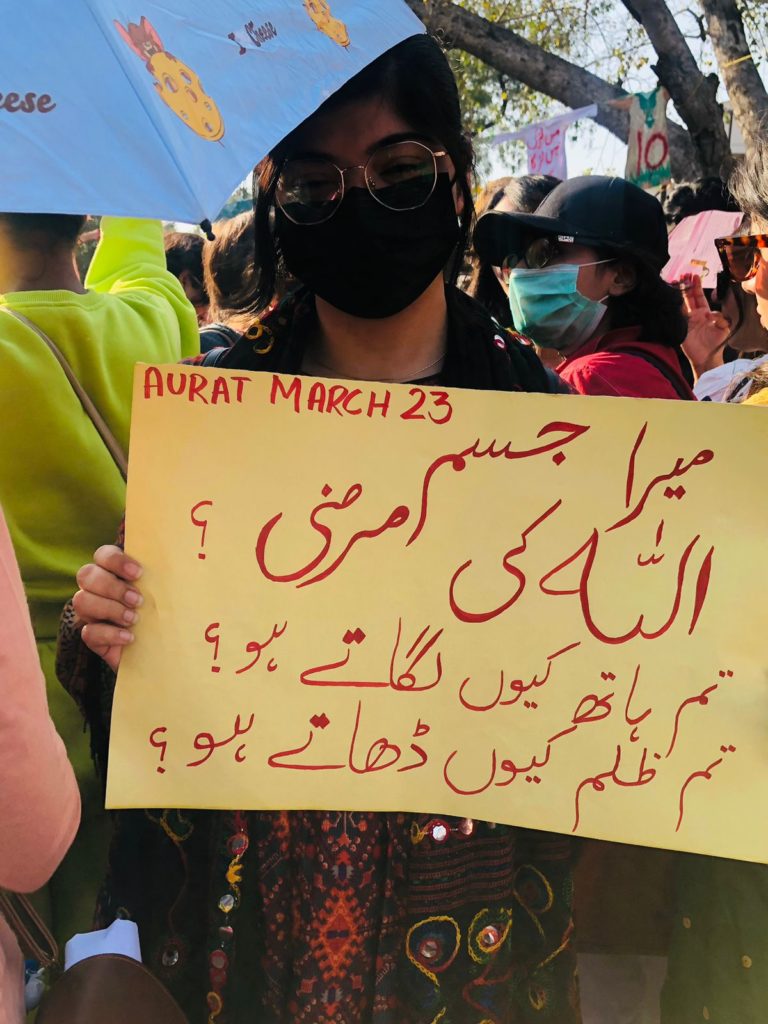 eese
I Cheese
10
AURAT MARCH 23
میرا جسم
اللہ کی مرضی ؟
تم ہاتھ کیوں لگاتے ہو ؟
تم ظلم کیوں ڈھاتے ہو ؟